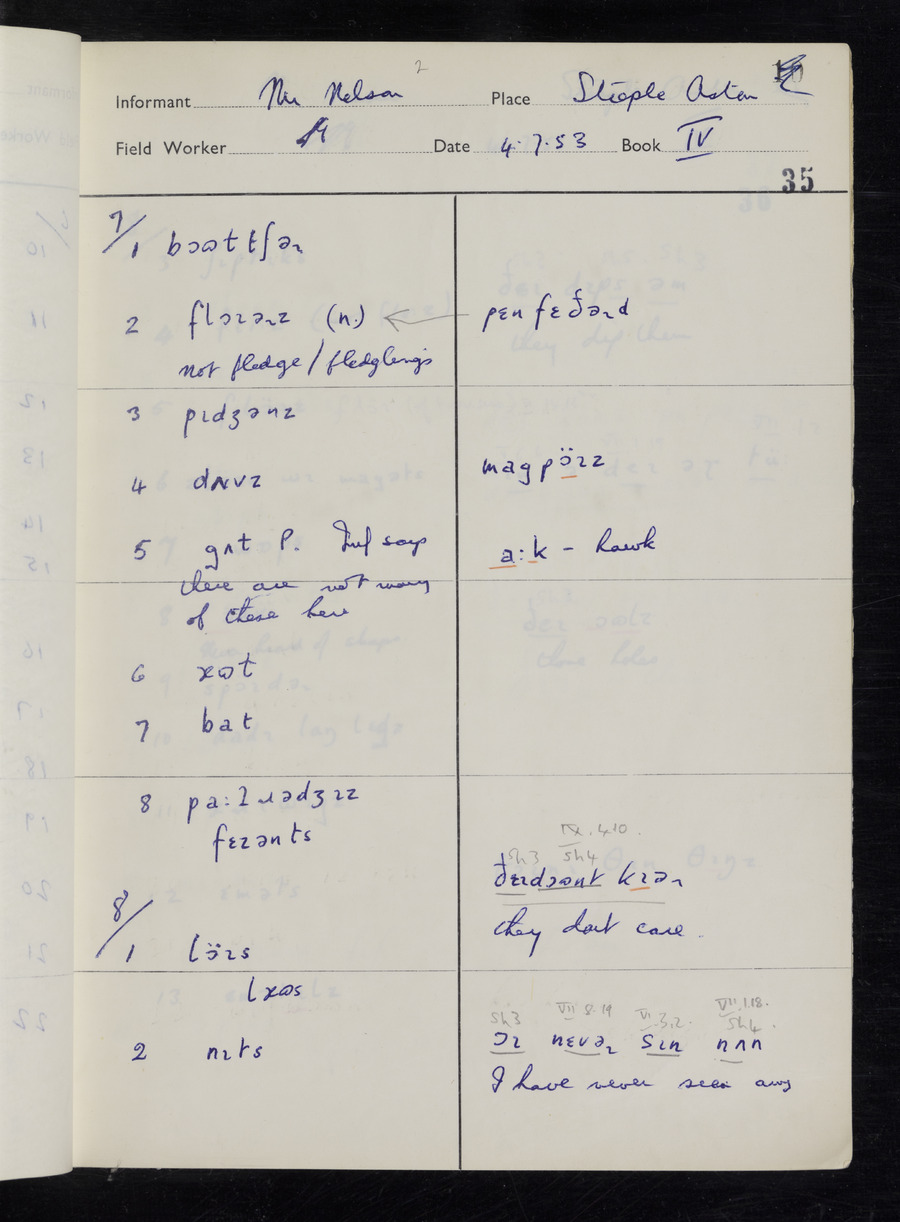 2
Informant Mr Nelson Place Steeple Aston
Field Worker Date 4.7.53 Book IV
35
7/1 bɔɷttʃəɹ
2 flɜɪəɹz (n.) ← pɛnfɛðəɹd
not fledge / fledglings
3 pɪdʒənz
4 dʌvz magpɔ̈ɪz
5 gʌt P. Inf says a:k – hawk
there are not many
of these here
6 ɤɷt
7 bat
8 pa:ʔɹədʒɪz
fɛzənts
IX.4.10.
Sh3 Sh4
ðɛɪdɔənt kɪəɹ
they don't care.
8/1 lɔ̈ɪs
lɤɷs
Sh3 VII 8.19 VI.3.2. VII 1.18. Sh4.
2 nɪts ɔɪ nɛvəɹ sɪn nʌn
I have never seen any